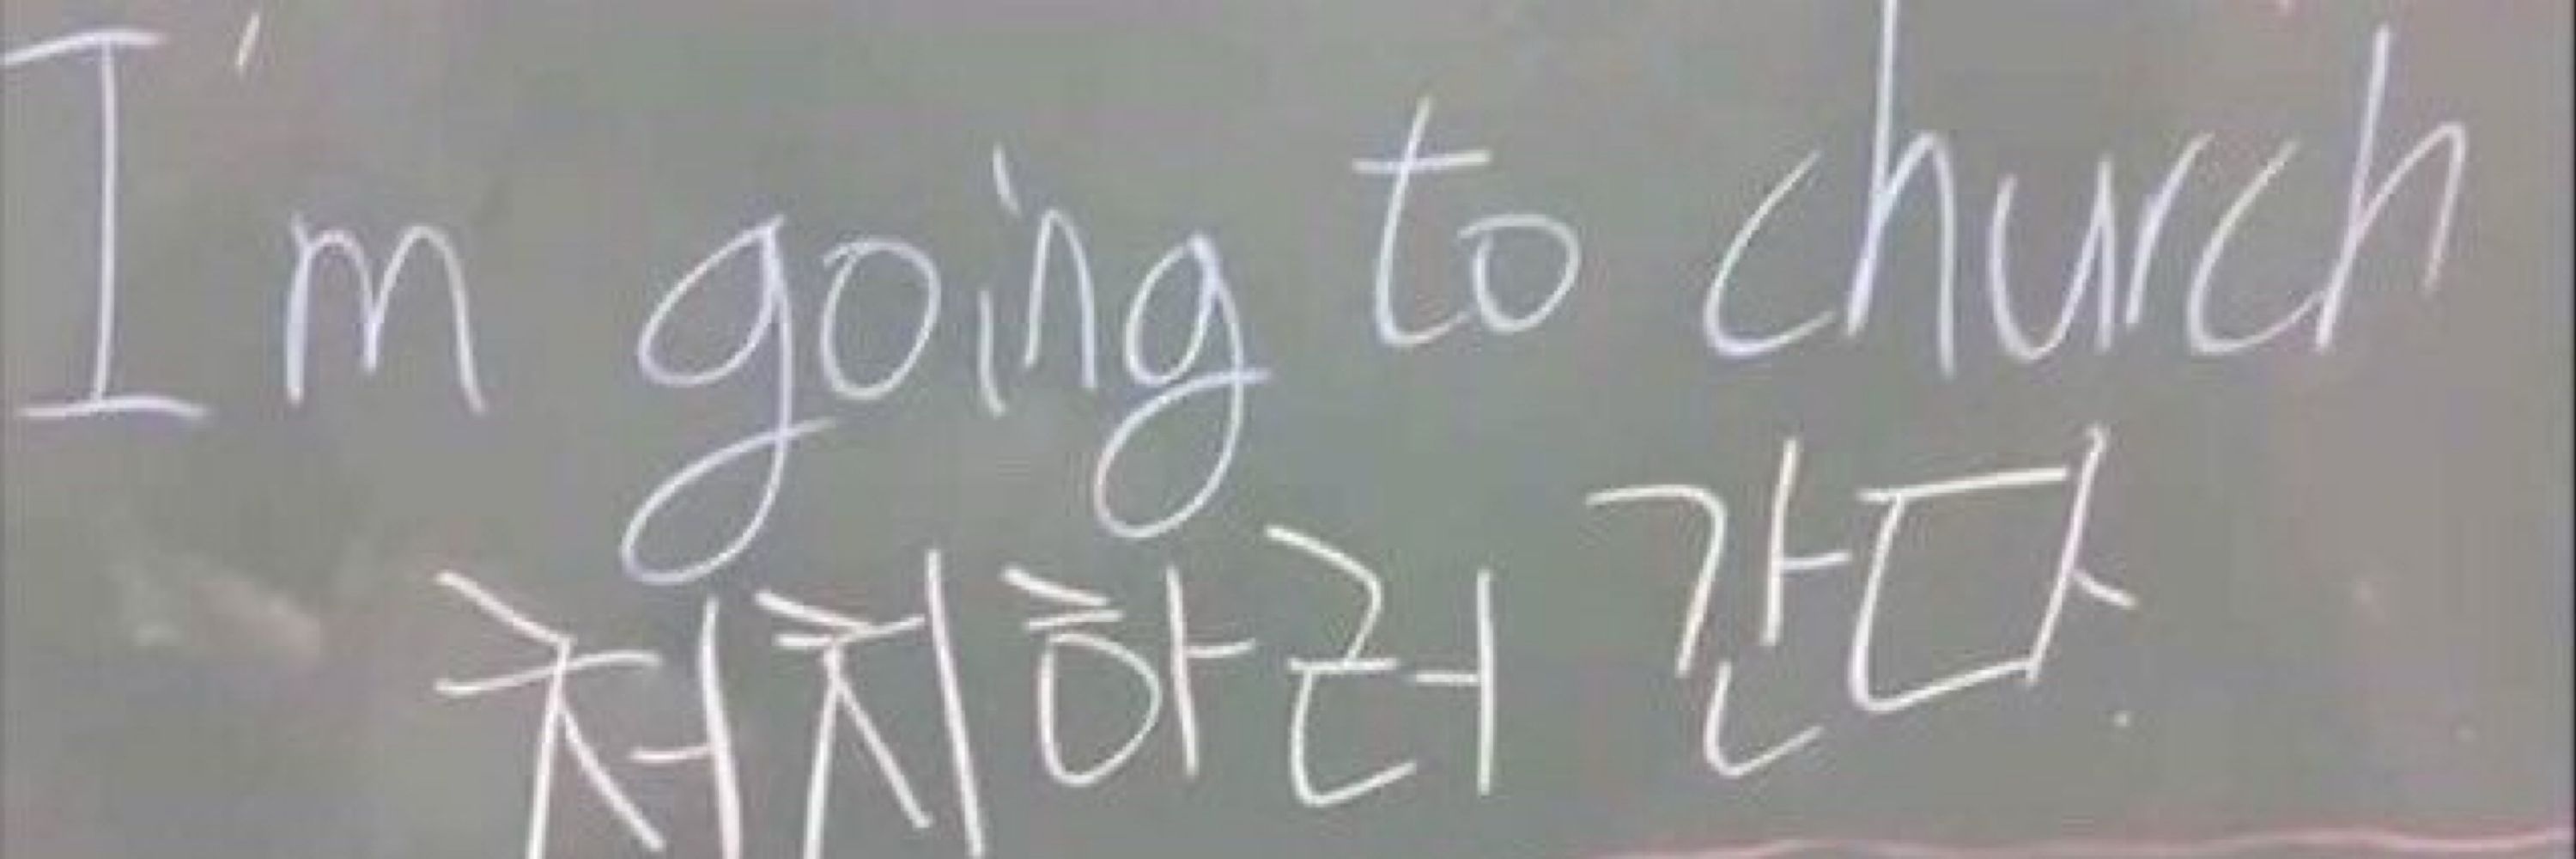 I'm going to church
처치하러 간다.